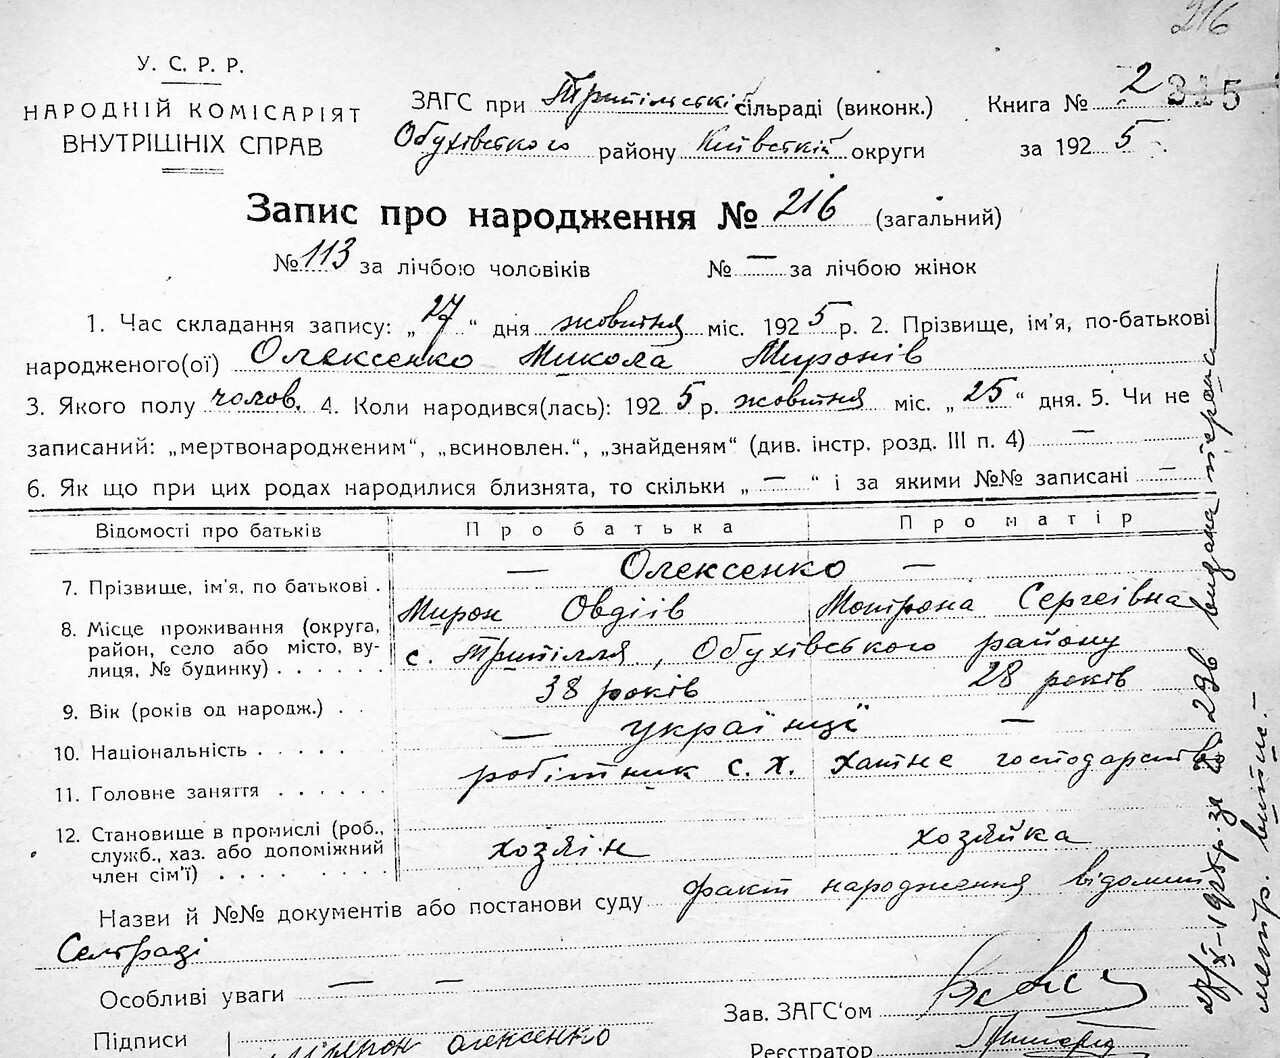 216
У. С. Р. Р.
НАРОДНІЙ КОМІСАРІЯТ
ВНУТРІШНІХ СПРАВ
ЗАГС при Трипільській сільраді (виконк.) Книга № 2 315
Обухівського району Київській округи за 192 5
Запис про народження № 216 (загальний)
№ 113 за лічбою чоловіків № — за лічбою жінок
1. Час складання запису: „27“ дня жовтня міс. 192 5 р. 2. Прізвище, ім'я, по-батькові
народженого(ої) Олексенко Микола Миронів
3. Якого полу чолов. 4. Коли народився(лась): 192 5 р. жовтня міс. „25“ дня. 5. Чи не
записаний: „мертвонародженим“, „всиновлен.“, „знайденям“ (див. інстр. розд. III п. 4) —
6. Як що при цих родах народилися близнята, то скільки „—“ і за якими №№ записані —
Відомості про батьків Про батька Про матір
7. Прізвище, ім'я, по батькові . — Олексенко —
Мирон Овдіїв Мотрона Сергеівна
8. Місце проживання (округа,
район, село або місто, ву-
лиця, № будинку) . . . . . с. Трипілля, Обухівського району
9. Вік (років од народж.) . . 38 років 28 років
10. Національність . . . . . . — українці —
11. Головне заняття . . . . . робітник с. х. хатне господарство
12. Становище в промислі (роб.,
служб., хаз. або допоміжний
член сім'ї) . . . . . . . . хозяін хозяйка
Назви й №№ документів або постанови суду факт народження відомий
Сельраді
Особливі уваги — —
Зав. ЗАГС‘ом
Підписи Мирон Олексенко
Реєстратор
видана
метр.